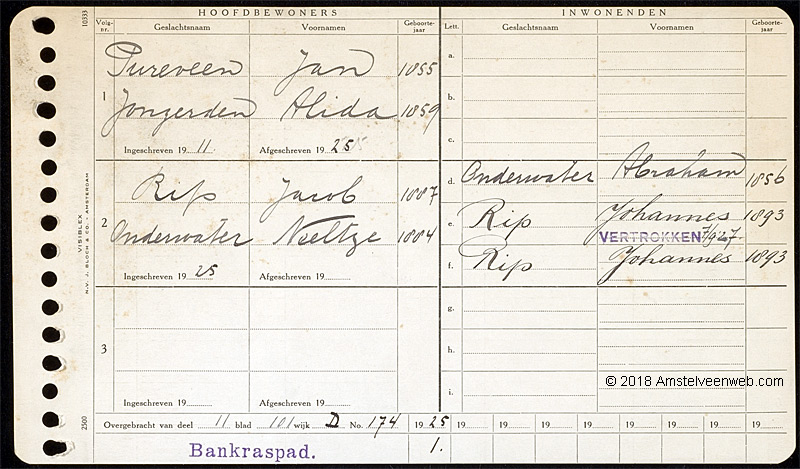 HOOFDBEWONERS INWONENDEN
Volg-nr. Geslachtsnaam Voornamen Geboorte-jaar Lett. Geslachtsnaam Voornamen Geboorte-jaar
10333
1 Pureveen Jan 1855
Jongerden Alida 1859
Ingeschreven 19 11 Afgeschreven 19 25
a.
b.
c.
2 Rip Jacob 1887
Onderwater Neeltje 1884
Ingeschreven 19 25 Afgeschreven 19
d. Onderwater Abraham 1856
e. Rip Johannes 1893
VERTROKKEN 7/9 27.
f. Rip Johannes 1893
3
Ingeschreven 19 Afgeschreven 19
g.
h.
i.
VISIBLEX
N.V. J. BLOCH & CO. - AMSTERDAM
2500
© 2018 Amstelveenweb.com
Overgebracht van deel 11 blad 101 wijk D No. 174 19 25 19 19 19 19 19 19 19 19
Bankraspad. 1.